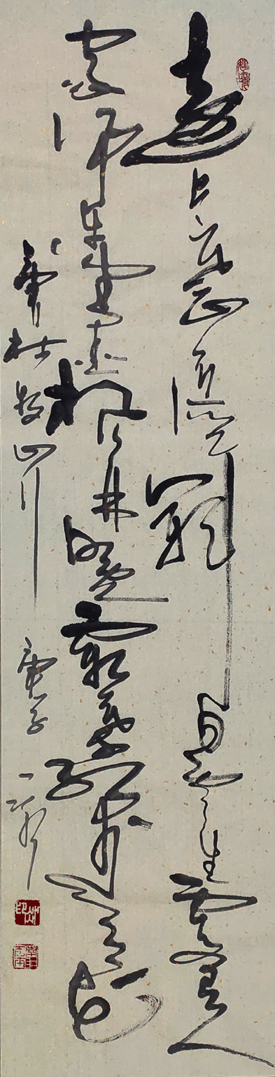 遠上寒山石徑斜白雲生處有人
家停車坐愛楓林晚霜葉紅於二月花
杜牧山行 庚子